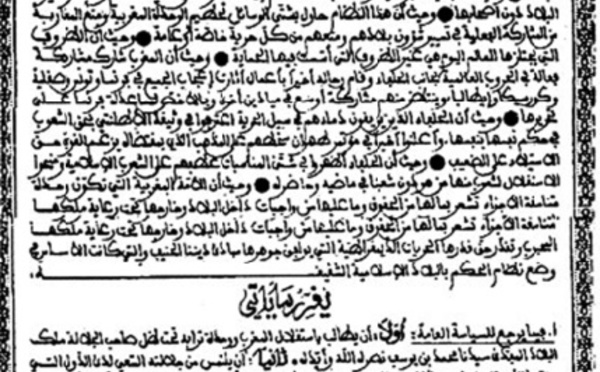 البلاد دون أصحابها ● وحيث أن هذا النظام حاول بشتى الوسائل تحطيم الوحدة المغربية ومنع المغاربة
من المشاركة الفعلية في تسيير شؤون بلادهم ومنعهم من كل حرية خاصة أو عامة ● وحيث أن الظروف
التي يجتازها العالم اليوم هي غير الظروف التي أسست فيها الحماية ● وحيث أن المغرب شارك مشاركة
فعالة في الحروب العالمية بجانب الحلفاء وقام رجاله أخيرا بأعمال أثارت إعجاب الجميع في فرنسا وتونس وصقلية
وكرسيكا وإيطاليا وينتظر منهم مشاركة أوسع في ميادين أخرى وبالأخص لمساعدة فرنسا على
تحريرها ● وحيث أن الحلفاء الذين يريقون دماءهم في سبيل الحرية اعترفوا في وثيقة الأطلنتي بحق الشعوب
في حكم نفسها بنفسها وأعلنوا أخيرا في مؤتمر طهران سخطهم على المذهب الذي بمقتضاه يزعم القوي حق
الاستيلاء على الضعيف ● وحيث أن الحلفاء أظهروا في شتى المناسبات عطفهم على الشعوب الإسلامية ومنحوا
الاستقلال لشعوب منها من هو دون شعبنا في ماضيه وحاضره ● وحيث أن الأمة المغربية التي تكون وحدة
متناسقة الأجزاء تشعر بما لها من الحقوق وما عليها من واجبات داخل البلاد وخارجها تحت رعاية ملكها
متناسقة الأجزاء تشعر بما لها من الحقوق وما عليها من واجبات داخل البلاد وخارجها تحت رعاية ملكها
المحبوب وتقدر حق قدرها الحريات الديمقراطية التي يوافق جوهرها مبادئ ديننا الحنيف والتي كانت الأساس في
وضع نظام الحكم بالبلاد الإسلامية الشقيقة
تقرر ما يأتي
أ. فيما يرجع للسياسة العامة: أولا: أن يطالب باستقلال المغرب ووحدة ترابه تحت ظل صاحب الجلالة ملك
البلاد المفدى سيدنا محمد بن يوسف نصره الله وأيده. ثانيا: أن يلتمس من جلالته السعي لدى الدول التي